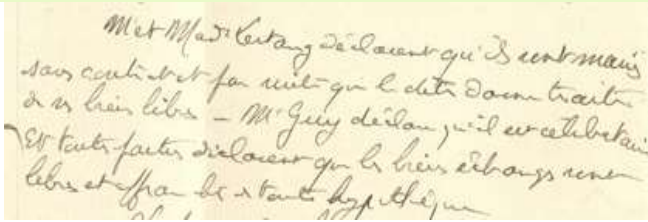 M et Mad Kertang déclarent qu'ils sont mariés
sans contrat et par suite que la dite Dame traite
de ses biens libres – Mr Guy déclare qu'il est célibataire
Et toutes parties déclarent que les biens échangés sont
libres et affranchis de toute hypothèque